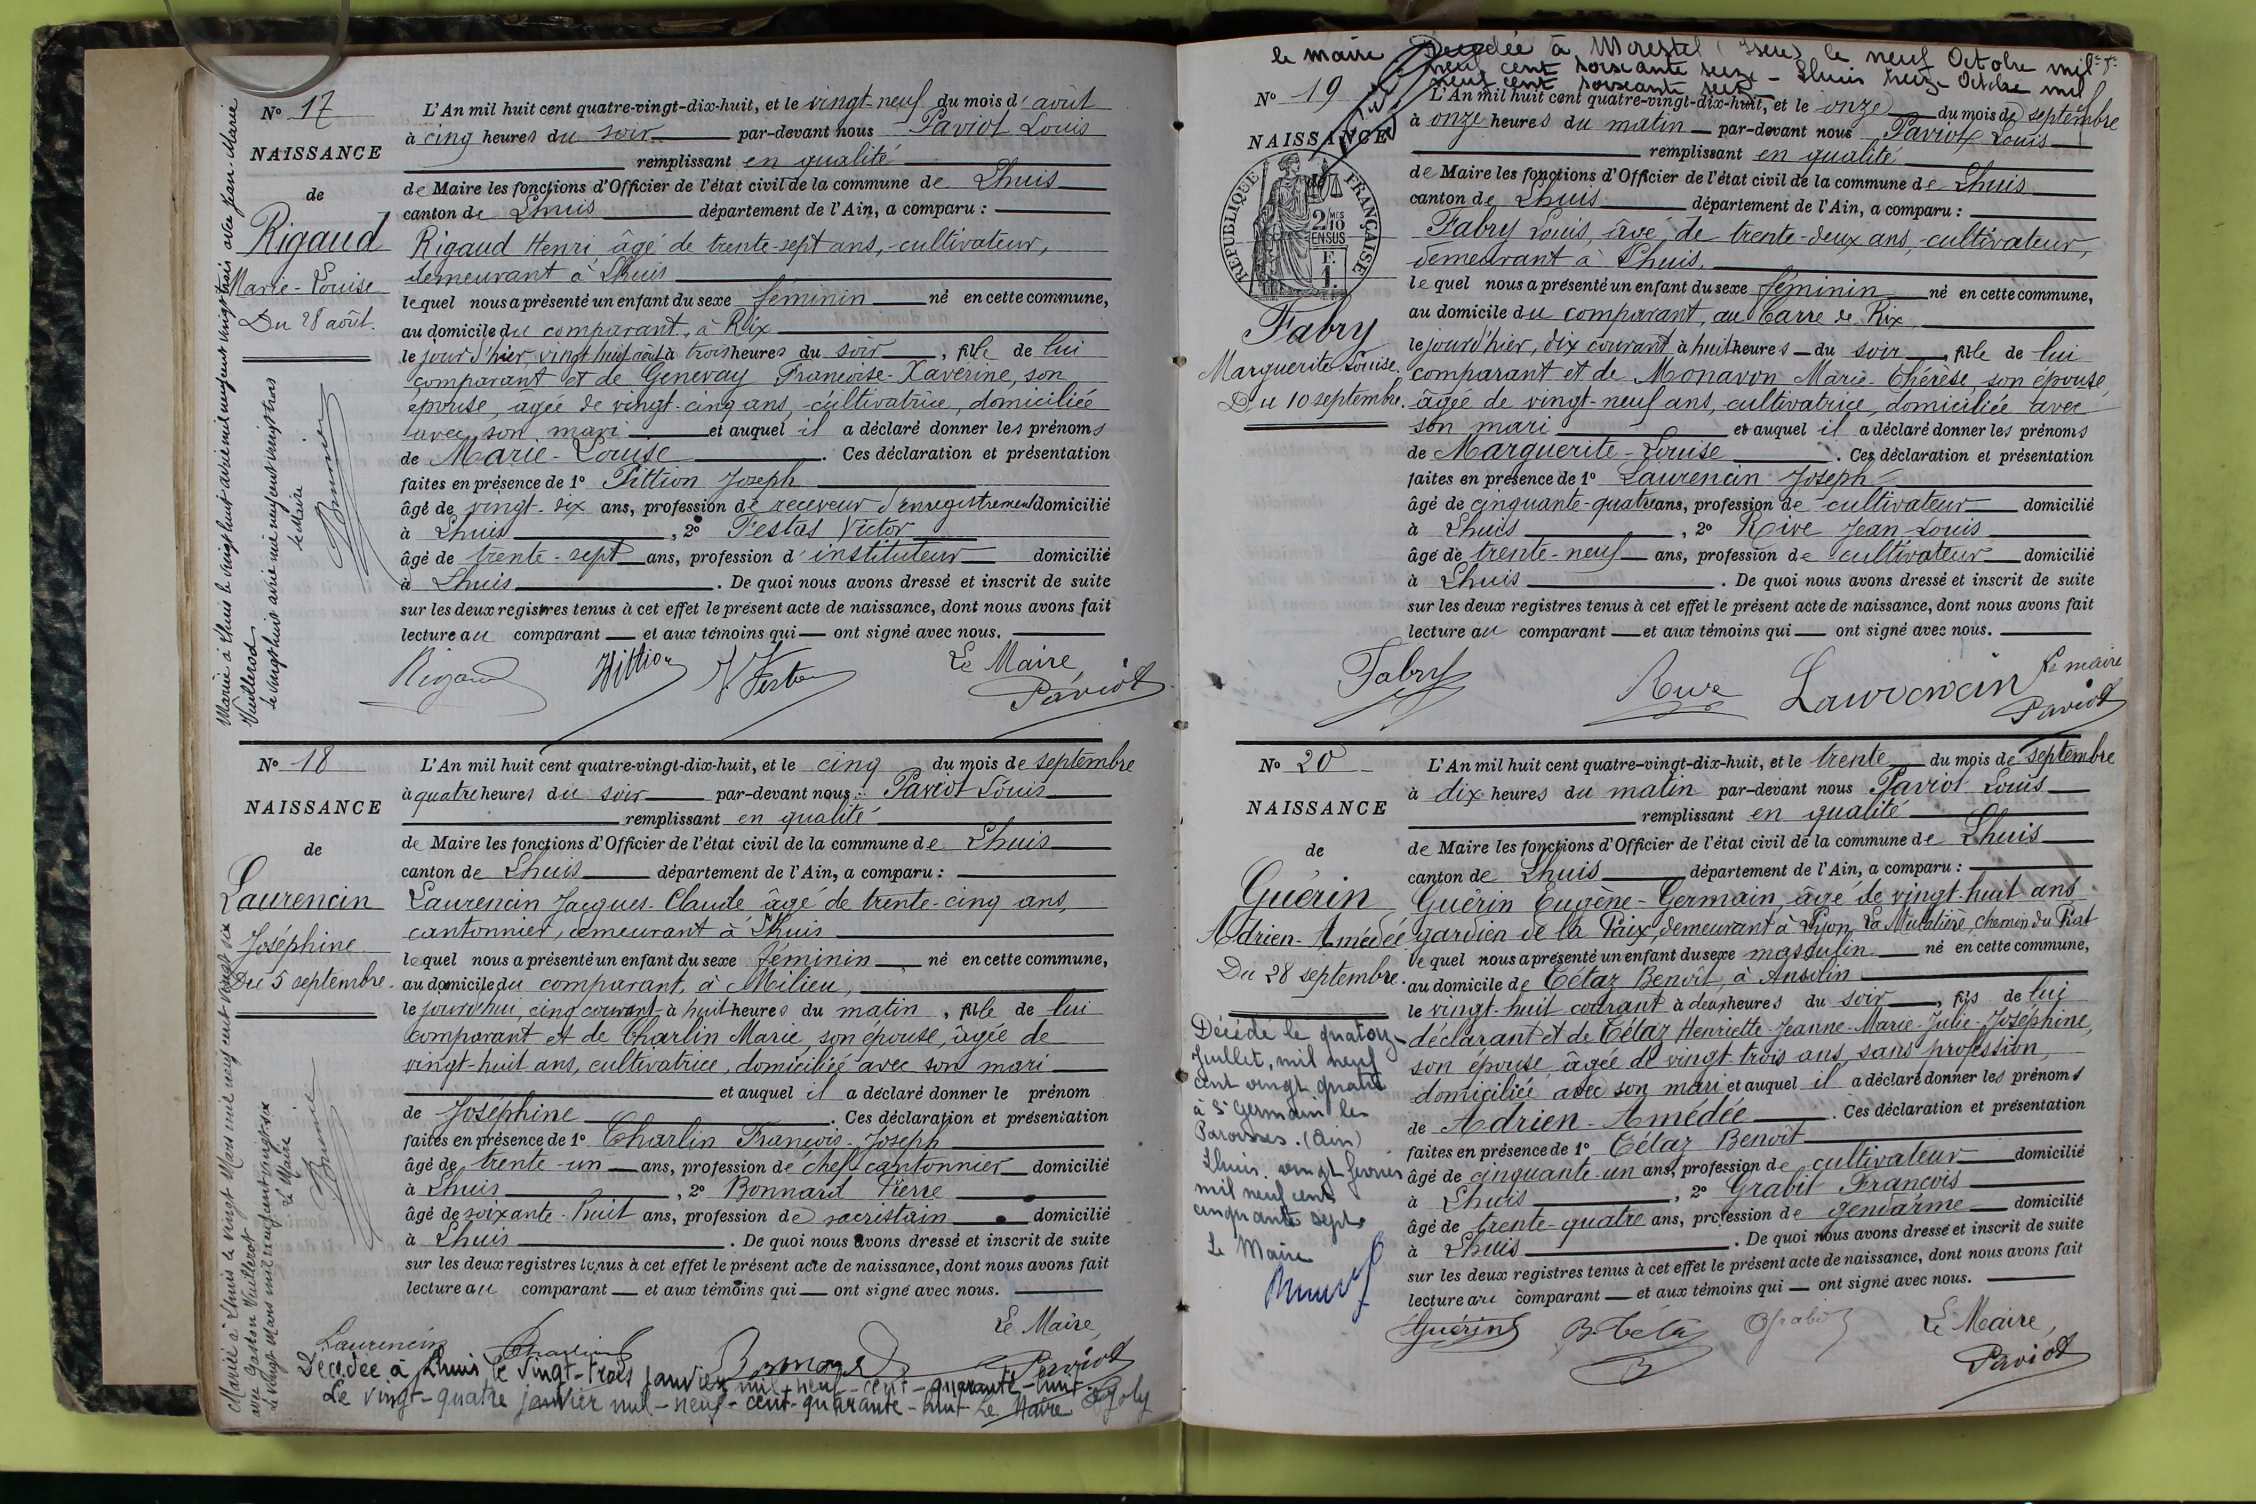 Nº 17
NAISSANCE
de
Rigaud
Marie-Louise
Du 28 août.
L'An mil huit cent quatre-vingt-dix-huit, et le vingt-neuf du mois d'août
à cinq heures du soir par-devant nous Paviot Louis
remplissant en qualité
de Maire les fonctions d'Officier de l'état civil de la commune de Lhuis
canton de Lhuis département de l'Ain, a comparu :
Rigaud Henri âgé de trente-sept ans, cultivateur,
demeurant à Lhuis
lequel nous a présenté un enfant du sexe féminin né en cette commune,
au domicile du comparant, à Rix
le jour d'hier, vingt huit août à trois heures du soir, fille de lui
comparant et de Genevay Françoise-Xaverine, son
épouse, agée de vingt-cinq ans, cultivatrice, domiciliée
avec son mari et auquel il a déclaré donner les prénoms
de Marie-Louise. Ces déclaration et présentation
faites en présence de 1º Pittion Joseph
âgé de vingt-six ans, profession de receveur d'enregistrement domicilié
à Lhuis, 2º Testas Victor
âgé de trente-sept ans, profession d'instituteur domicilié
à Lhuis. De quoi nous avons dressé et inscrit de suite
sur les deux registres tenus à cet effet le présent acte de naissance, dont nous avons fait
lecture au comparant et aux témoins qui ont signé avec nous.
Rigaud Pittion Le Maire,
Paviot
Mariée à Lhuis le vingt huit avril mil neuf cent vingt trois avec Jean-Marie
Vuillerod
le vingt huit avril mil neuf cent vingt trois
le Maire
Nº 18
NAISSANCE
de
Laurencin
Joséphine
Du 5 septembre.
L'An mil huit cent quatre-vingt-dix-huit, et le cinq du mois de septembre
à quatre heures du soir par-devant nous Paviot Louis
remplissant en qualité
de Maire les fonctions d'Officier de l'état civil de la commune de Lhuis
canton de Lhuis département de l'Ain, a comparu :
Laurencin Jacques-Claude âgé de trente-cinq ans,
cantonnier, demeurant à Lhuis
lequel nous a présenté un enfant du sexe féminin né en cette commune,
au domicile du comparant, à Milieu,
le jourd'hui, cinq courant à huit heures du matin, fille de lui
comparant et de Charlin Marie, son épouse, âgée de
vingt-huit ans, cultivatrice, domiciliée avec son mari
et auquel il a déclaré donner le prénom
de Joséphine. Ces déclaration et présentation
faites en présence de 1º Charlin François-Joseph
âgé de trente-un ans, profession de chef cantonnier domicilié
à Lhuis, 2º Bonnard Pierre
âgé de soixante-huit ans, profession de sacristain domicilié
à Lhuis. De quoi nous avons dressé et inscrit de suite
sur les deux registres tenus à cet effet le présent acte de naissance, dont nous avons fait
lecture au comparant et aux témoins qui ont signé avec nous.
Le Maire,
Laurencin Charlin Bonnard Paviot
Décédée à Lhuis le vingt-trois janvier mil-neuf-cent-quarante-huit
Le vingt-quatre janvier mil-neuf-cent-quarante-huit Le Maire
Mariée à Lhuis le vingt Mars mil neuf cent vingt six
avec Gaston Vuillerot
Le vingt Mars mil neuf cent vingt-six
Le Maire
le maire Décédée à Morestel (Isère) le neuf Octobre mil
neuf cent soixante seize - Lhuis treize Octobre mil
neuf cent soixante seize
Nº 19
NAISSANCE
RÉPUBLIQUE FRANÇAISE
2/10
EN SUS
Fabry
Marguerite-Louise.
Du 10 septembre.
L'An mil huit cent quatre-vingt-dix-huit, et le onze du mois de septembre
à onze heures du matin par-devant nous Paviot Louis
remplissant en qualité
de Maire les fonctions d'Officier de l'état civil de la commune de Lhuis
canton de Lhuis département de l'Ain, a comparu :
Fabry Louis, âgé de trente-deux ans, cultivateur,
demeurant à Lhuis,
lequel nous a présenté un enfant du sexe féminin né en cette commune,
au domicile du comparant, au Carre de Rix
le jour d'hier, dix courant à huit heures du soir, fille de lui
comparant et de Monavon Marie-Thérèse, son épouse,
âgée de vingt-neuf ans, cultivatrice, domiciliée avec
son mari et auquel il a déclaré donner les prénoms
de Marguerite-Louise. Ces déclaration et présentation
faites en présence de 1º Laurencin Joseph
âgé de cinquante-quatre ans, profession de cultivateur domicilié
à Lhuis, 2º Rive Jean-Louis
âgé de trente-neuf ans, profession de cultivateur domicilié
à Lhuis. De quoi nous avons dressé et inscrit de suite
sur les deux registres tenus à cet effet le présent acte de naissance, dont nous avons fait
lecture au comparant et aux témoins qui ont signé avec nous.
Fabry Rive Laurencin Le maire
Paviot
Nº 20
NAISSANCE
de
Guérin
Adrien-Amédée
Du 28 septembre.
L'An mil huit cent quatre-vingt-dix-huit, et le trente du mois de septembre
à dix heures du matin par-devant nous Paviot Louis
remplissant en qualité
de Maire les fonctions d'Officier de l'état civil de la commune de Lhuis
canton de Lhuis département de l'Ain, a comparu :
Guérin Eugène-Germain, âgé de vingt-huit ans
gardien de la Paix, demeurant à Lyon, La Mulatière, chemin du
lequel nous a présenté un enfant du sexe masculin né en cette commune,
au domicile de Tétaz Benoît, à Ansolin
le vingt-huit courant à deux heures du soir, fils de lui
déclarant et de Tétaz Henriette-Jeanne-Marie-Julie-Joséphine,
son épouse, âgée de vingt-trois ans, sans profession,
domiciliée avec son mari et auquel il a déclaré donner les prénoms
de Adrien-Amédée. Ces déclaration et présentation
faites en présence de 1º Tétaz Benoît
âgé de cinquante-un ans, profession de cultivateur domicilié
à Lhuis, 2º Grabit François
âgé de trente-quatre ans, profession de gendarme domicilié
à Lhuis. De quoi nous avons dressé et inscrit de suite
sur les deux registres tenus à cet effet le présent acte de naissance, dont nous avons fait
lecture au comparant et aux témoins qui ont signé avec nous.
Guérin B Tétaz Grabit Le Maire,
Paviot
Décédé le quatorze
Juillet, mil neuf
cent vingt quatre
à St Germain les
Paroisses. (Ain)
Lhuis vingt février
mil neuf cent
cinquante sept
Le Maire